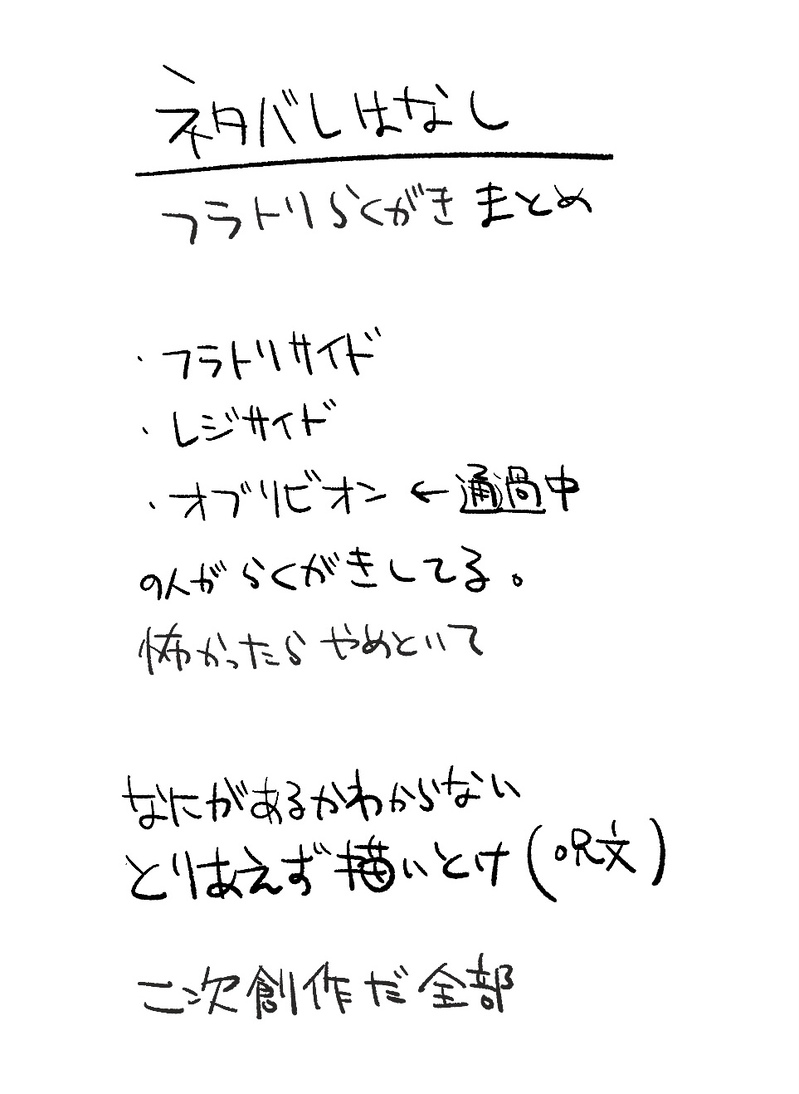 ネタバレはなし
フラトリらくがきまとめ
・フラトリサイド
・レジサイド
・オブリビオン ← 通過中
の人がらくがきしてる。
怖かったらやめといて
なにがあるかわからない
とりあえず描いとけ(呪文)
二次創作だ全部